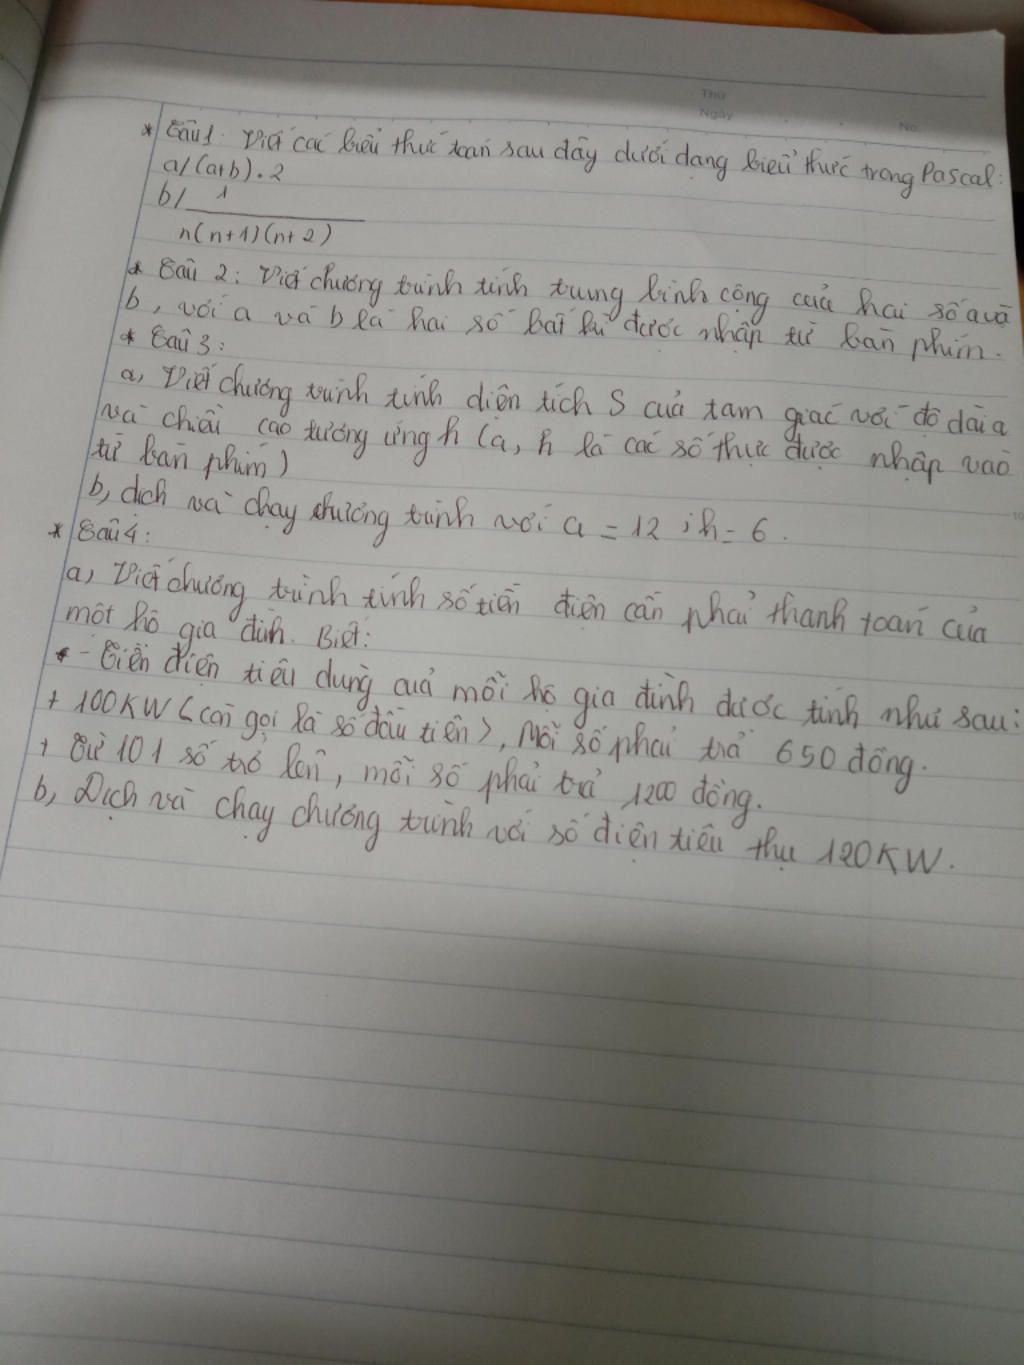 Thứ
Ngày
No.
* Câu 1: Viết các biểu thức toán sau đây dưới dạng biểu thức trong Pascal:
a/ (a+b).2
b/ 1
n(n+1)(n+2)
* Câu 2: Viết chương trình tính trung bình cộng của hai số a và
b, với a và b là hai số bất kì được nhập từ bàn phím.
* Câu 3:
a, Viết chương trình tính diện tích S của tam giác với độ dài a
và chiều cao tương ứng h (a, h là các số thực được nhập vào
từ bàn phím)
b, dịch và chạy chương trình với a = 12; h = 6.
* Câu 4:
a, Viết chương trình tính số tiền điện cần phải thanh toán của
một hộ gia đình. Biết:
- Tiền điện tiêu dùng của mỗi hộ gia đình được tính như sau:
+ 100KW <còn gọi là số đầu tiên>, Mỗi số phải trả 650 đồng.
+ Từ 101 số trở lên, mỗi số phải trả 1200 đồng.
b, Dịch và chạy chương trình với số điện tiêu thụ 120KW.
10